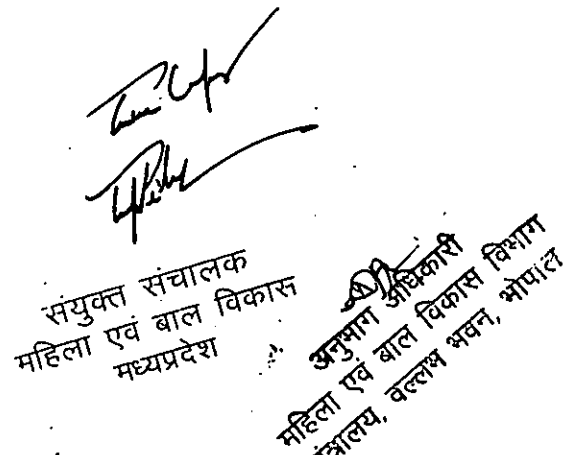 संयुक्त संचालक
महिला एवं बाल विकास
मध्यप्रदेश
अनुभाग अधिकारी
महिला एवं बाल विकास विभाग
मंत्रालय, वल्लभ भवन, भोपाल